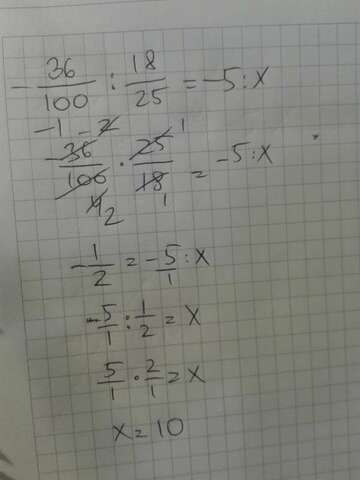 - 36/100 : 18/25 = -5 : x
-1 -2
-36/100 · 25/18 1 = -5 : x
4 2 1
-1/2 = -5/1 : x
-5/1 : 1/2 = x
5/1 · 2/1 = x
x = 10